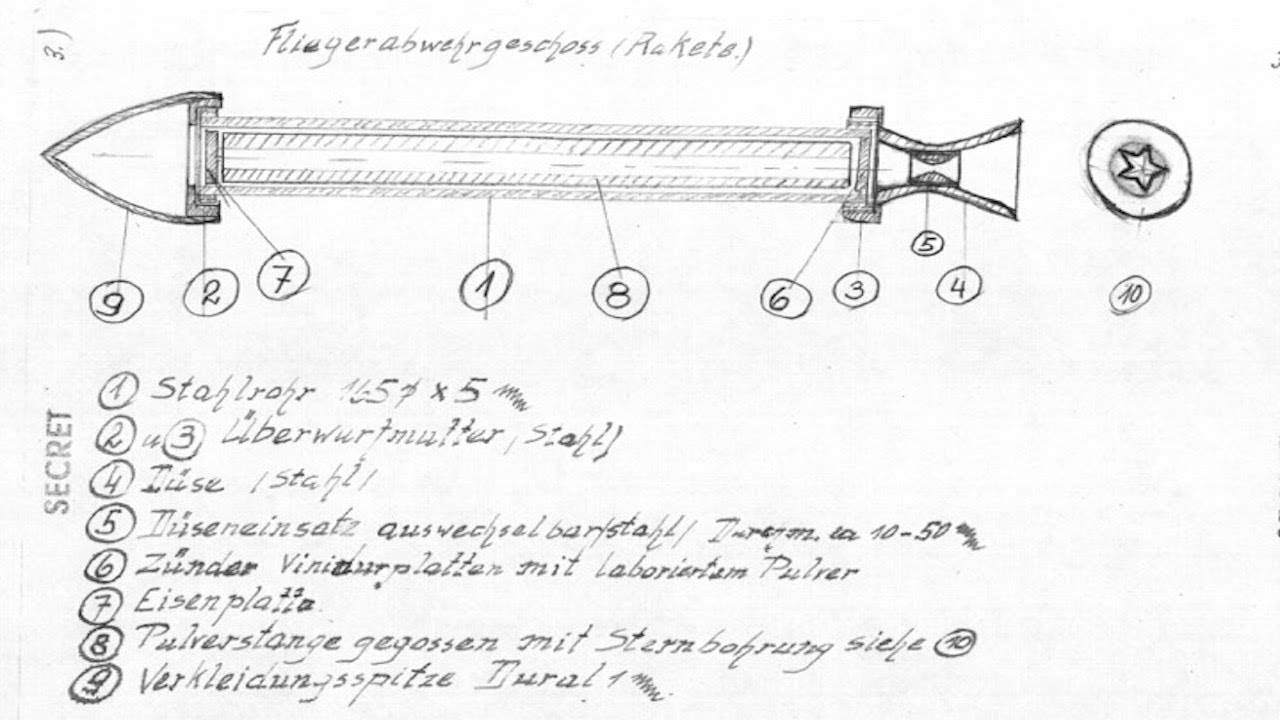 3.)
Fliegerabwehrgeschoss (Rakete.)
9 2 7 1 8 6 3 5 4 10
SECRET
① Stahlrohr 165 φ x 5 mm
② u ③ Überwurfmutter, Stahl/
④ Düse /Stahl/
⑤ Düseneinsatz auswechselbar/stahl/ Durchm. ca 10-50 mm
⑥ Zünder Vinidurplatten mit laboriertem Pulver
⑦ Eisenplatte
⑧ Pulverstange gegossen mit Sternbohrung siehe ⑩
⑨ Verkleidungsspitze Dural 1 mm.